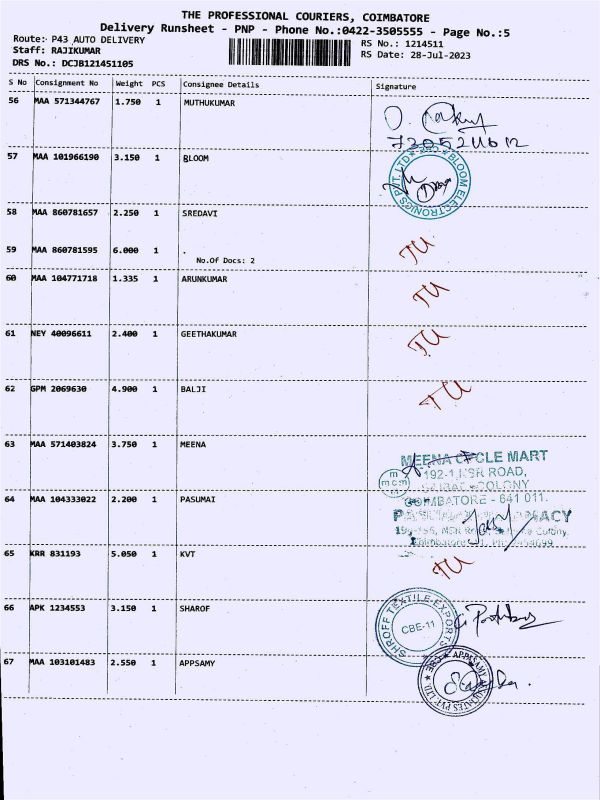 THE PROFESSIONAL COURIERS, COIMBATORE
Delivery Runsheet - PNP - Phone No.:0422-3505555 - Page No.:5
Route: P43 AUTO DELIVERY
Staff: RAJIKUMAR
DRS No.: DCJB121451105
RS No.: 1214511
RS Date: 28-Jul-2023
S No Consignment No Weight PCS Consignee Details Signature
56 MAA 571344767 1.750 1 MUTHUKUMAR
57 MAA 101966190 3.150 1 BLOOM
BLOOM ELECTRONICS PVT. LTD * CBE *
58 MAA 860781657 2.250 1 SREDAVI
59 MAA 860781595 6.000 1 . TU
No.Of Docs: 2
60 MAA 104771718 1.335 1 ARUNKUMAR TU
61 NEY 40096611 2.400 1 GEETHAKUMAR TU
62 GPM 2069630 4.900 1 BALJI TU
63 MAA 571403824 3.750 1 MEENA
MEENA CYCLE MART
192-1, NSR ROAD,
COLONY
COIMBATORE - 641 011.
64 MAA 104333022 2.200 1 PASUMAI
65 KRR 831193 5.050 1 KVT TU
66 APK 1234553 3.150 1 SHAROF
SHROFF TEXTILE EXPORTS
CBE-11
67 MAA 103101483 2.550 1 APPSAMY
APPASAMY PVT. LTD. * CBE *